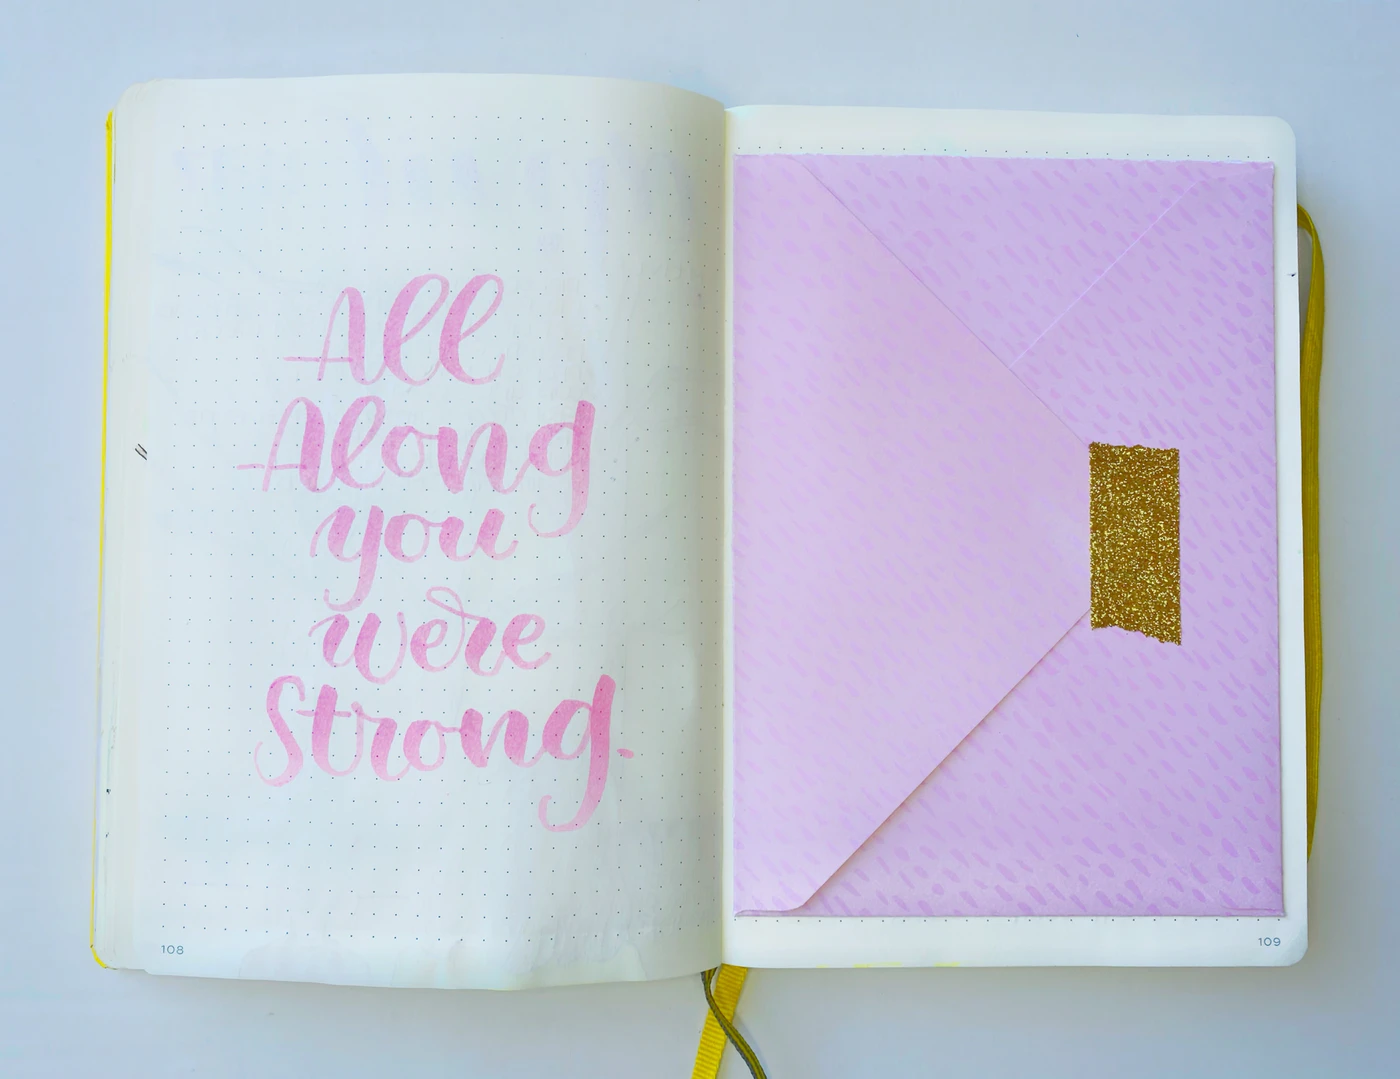 All
Along
you
were
Strong.
108
109